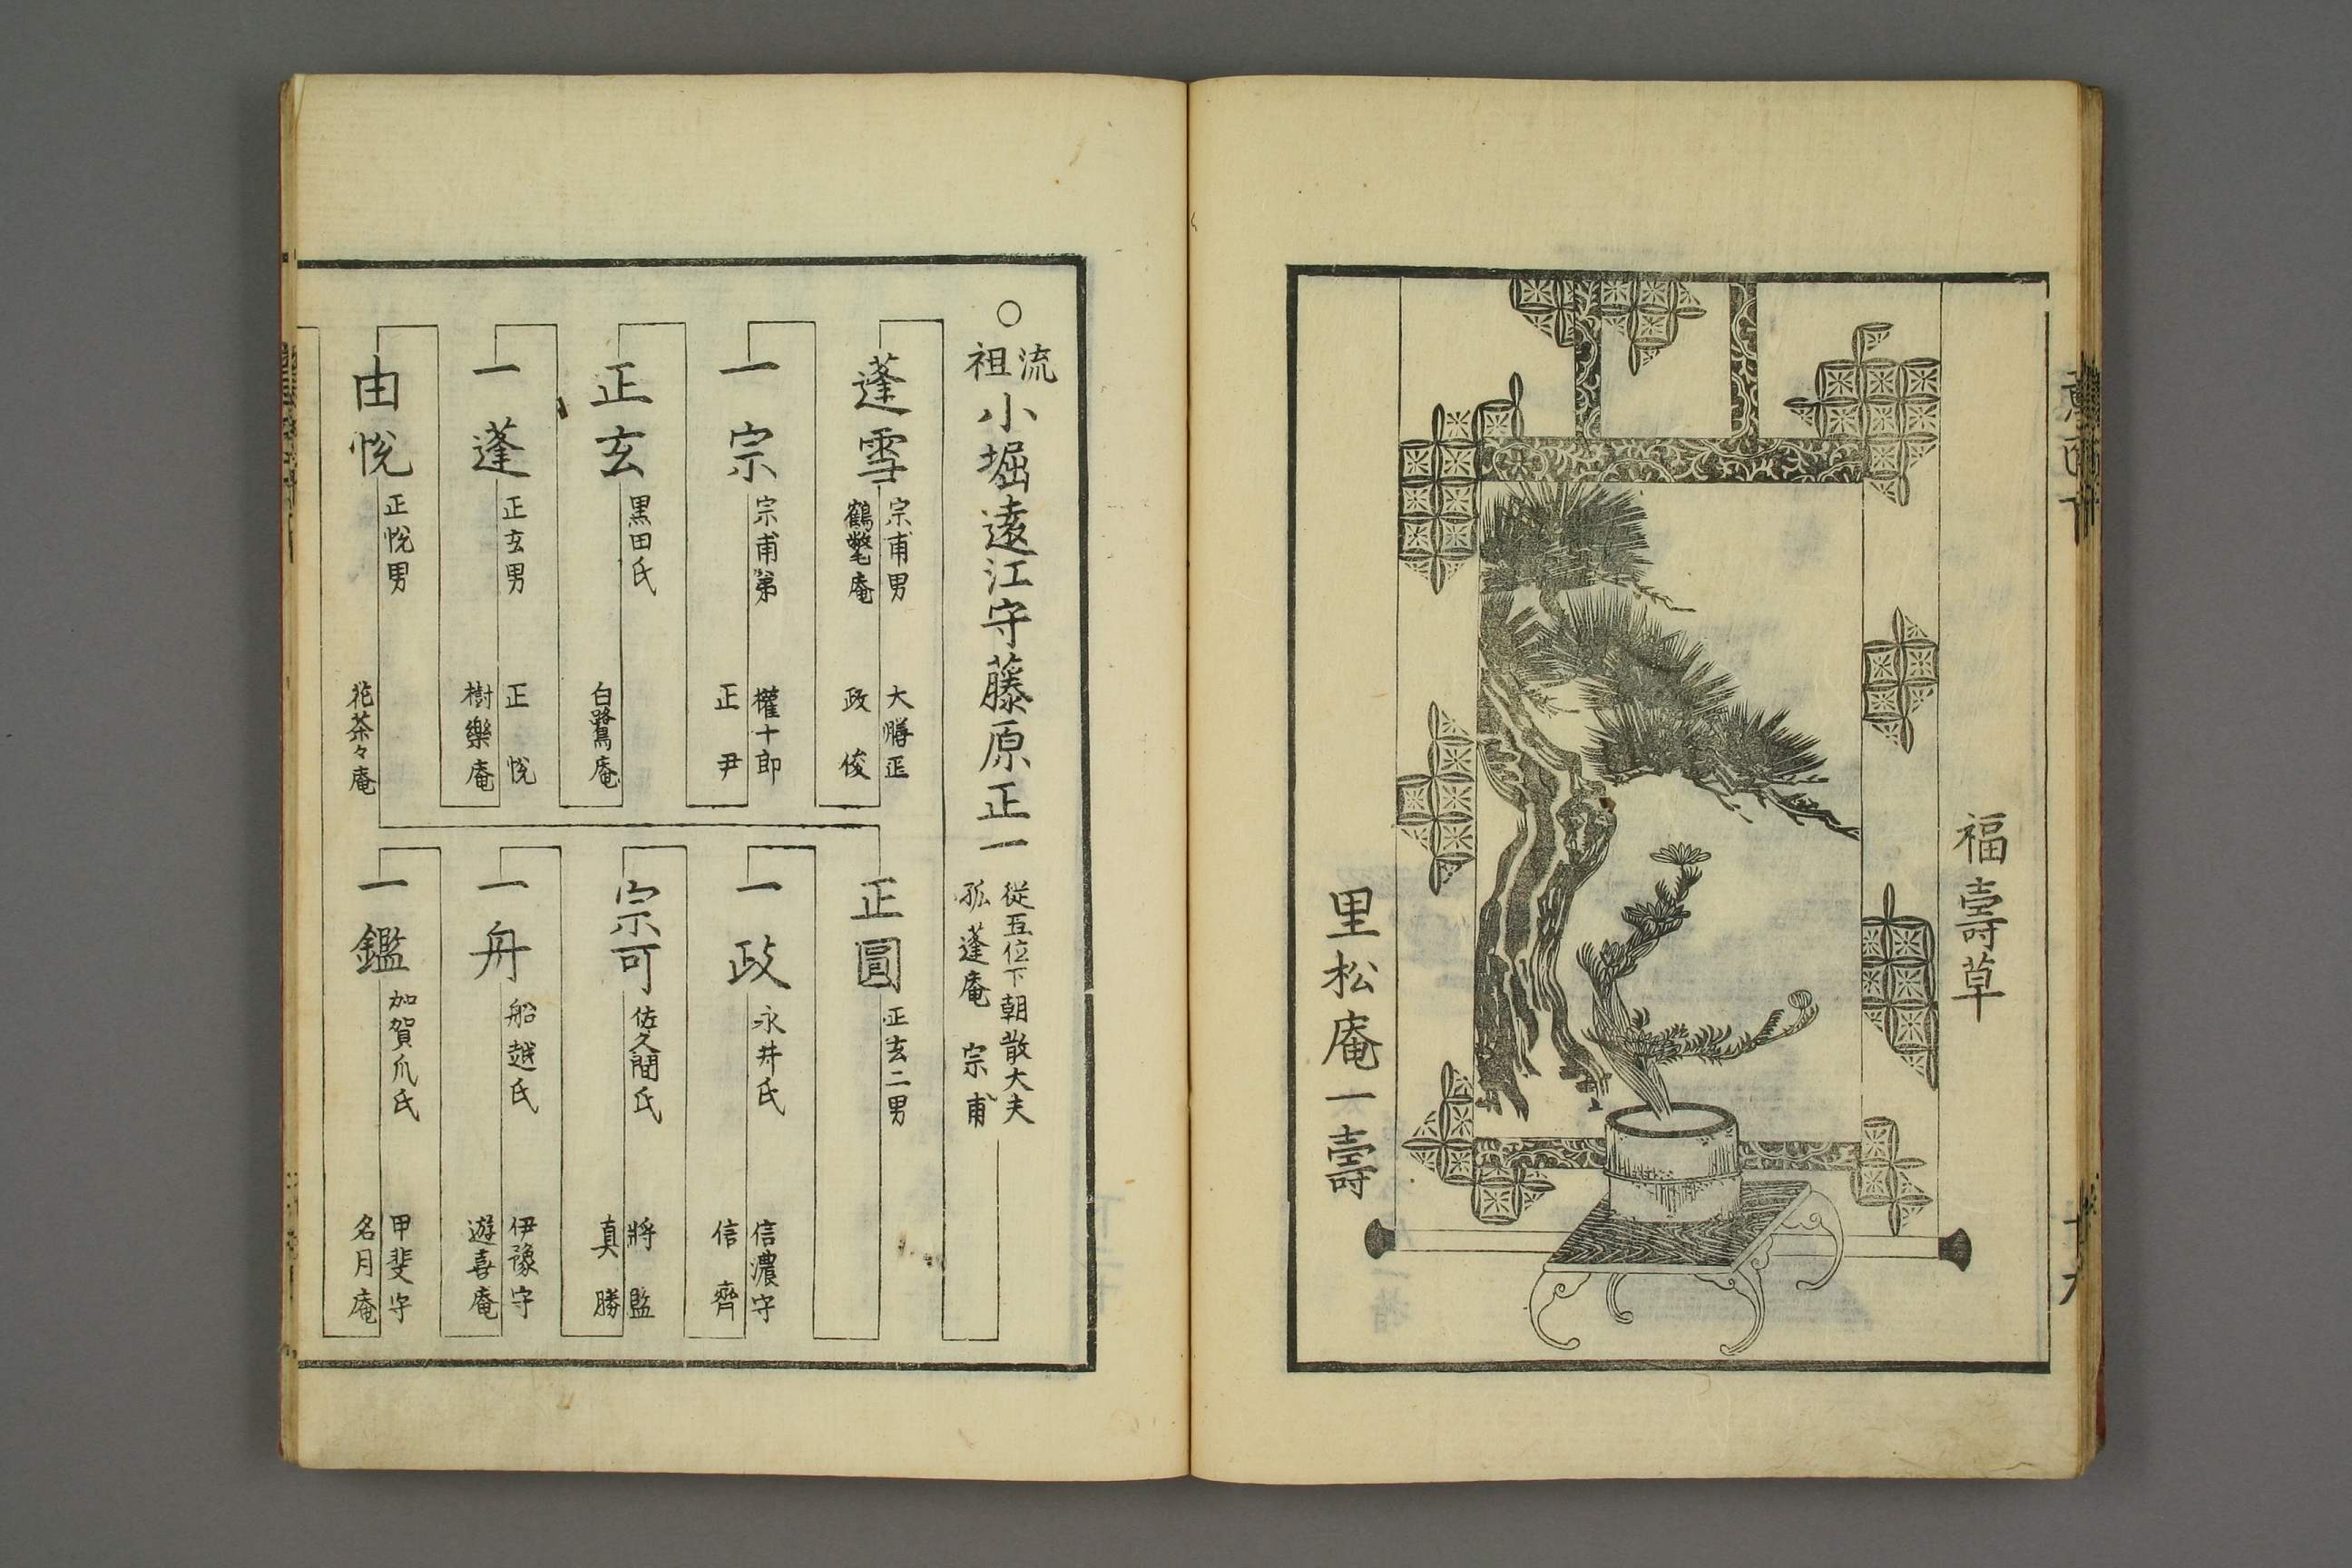 福壽草
里松庵一壽
○流祖小堀遠江守藤原正一
從五位下朝散大夫
孤蓬庵 宗甫
蓬雪
宗甫男
鶴氅庵
大膳正
政俊
一宗
宗甫弟
權十郎
正尹
正玄
黒田氏
白鷺庵
一蓬
正玄男
正悅
樹樂庵
由悅
正悅男
花茶々庵
正圓
正玄二男
一政
永井氏
信濃守
信齊
宗可
佐久間氏
將監
真勝
一舟
船越氏
伊豫守
遊喜庵
一鑑
加賀爪氏
甲斐守
名月庵